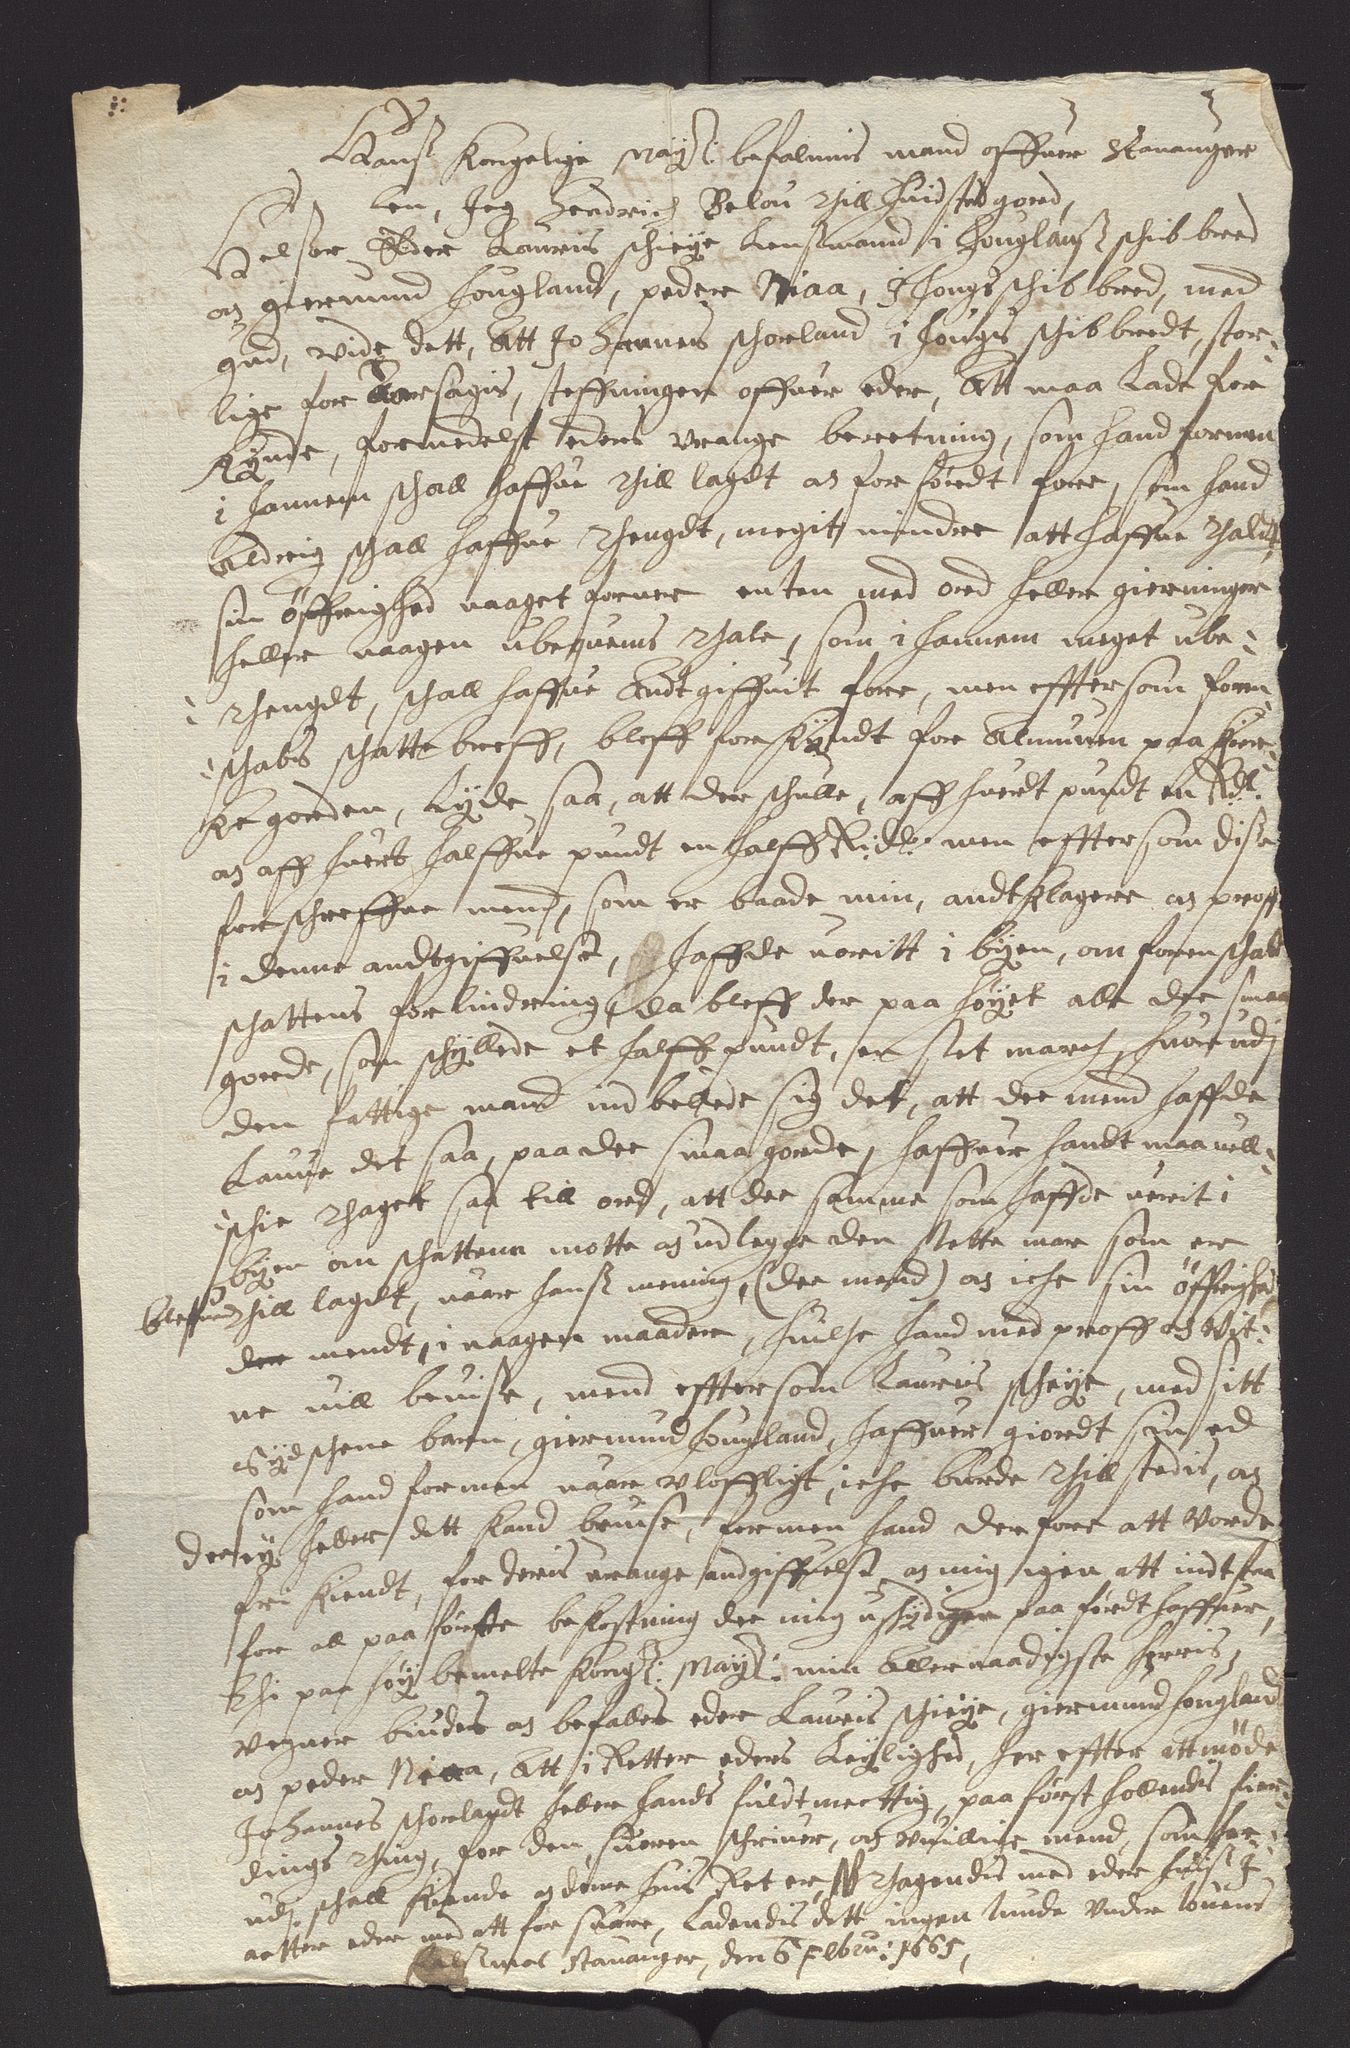 Hans Kongelige Mayst: befalnings mand offuer Stauanger
Len, Jeg Hendrich Belou thill Huidsted gord,
Helser Eder Lauris schieye Lensmand i Houglans schibbred
og giermund Hougland, peder Niaa, i Hougs schibbred, med
gud, vide dett, Att Johannes schorland i Hougs schibbredt, stor-
lige for Aarsagis, steffninger offuer eder, Att maa Lade for
Kynde, formedelst eders vrange berettning, som hand formen
i hannem schall haffue thill lagdt og for hørdt fore, som hand
aldreig schall haffue thengdt, megit mindre att haffue thaldt
sin öffrighed naaget fornær enten med ord heller gierninger
heller naagen ubequems thale, som i hannem meget ube-
thengdt, schall haffue Andtgiffuit fore, men efftersom forin-
schabs schatte breff, bleff forkyndt for Almuuen paa Kier-
ke gorden, Lyde saa, att der schulle, aff huerdt pundt en Rdl.
og aff huert halffue pundt en halff Ridl: men efftersom dise
forschreffne mend, som er baade min, andtklagere og proff
i denne andtgiffuelse, haffde uoritt i byen, om forenschab
schattens forlindring, da bleff der paa Høyet alle dee smaa
gorde, som schyllede et halff pundt, en slet march, huor udj
den fattige mand ind bellede sig det, att dee mend haffde
Lauue det saa, paa dee smaa gorde, haffuer handt maa uell-
schie thaget saa till ord, att dee samme som haffde uerit i
byen om schattenn motte og udlegge den slette mar som er
bleffuen thill lagdt, uaar hans mening, (dee mend) og iche sin öffrighed
der mendt, i naagen maadere, huilche hand med proff og vit-
ne uill beuise, mend efftersom Lauris schieye, med sitt
sydschene barn, giermund Hougland, haffuer giordt sin ed
som hand formen uaare vloffligt, iche burde thillstedis, og
dee ey heller dett kand beuise, formen hand derfore att vorde
fri kiendt, for deris vrange andgiffuelse, og mig igen att indtstaa
for al paa førtte bekostning dee mig uschyldiger paa førdt haffuer,
thi paa høybemelte Kongl: Mayst: min Allernaadigste herris,
vegner biudes og befalles eder Lauris schieye, giermund Hougland
og peder Niaa, Att i Retter eders Leylighed, her effter att møde
Johannes schorlandt heller hands fuldtmecttig, paa først hollendis fier-
dings thing, for den suoren schriuer, og vuillige mend, som her-
udj schall kiende og døme huis Ret er, thagendis med eder huis I
agtter eder med att forsuare, Ladendis dett ingen lunde under louens
falsmaal Stauanger, den 6 Febru: 1665,